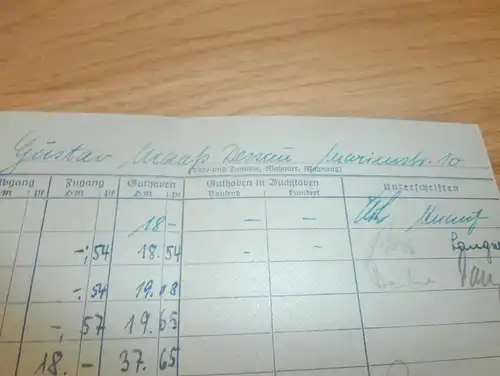 Gustav Maaß Dessau, Marienstr. 10
(Vor- und Zuname, Wohnort, Wohnung)
Abgang Zugang Guthaben Guthaben in Buchstaben Unterschriften
DM Pf DM Pf DM Pf Tausend Hundert
18 - - -
-, 54 18. 54 - -
-. 54 19. 08
-, 57 19. 65
18. - 37. 65